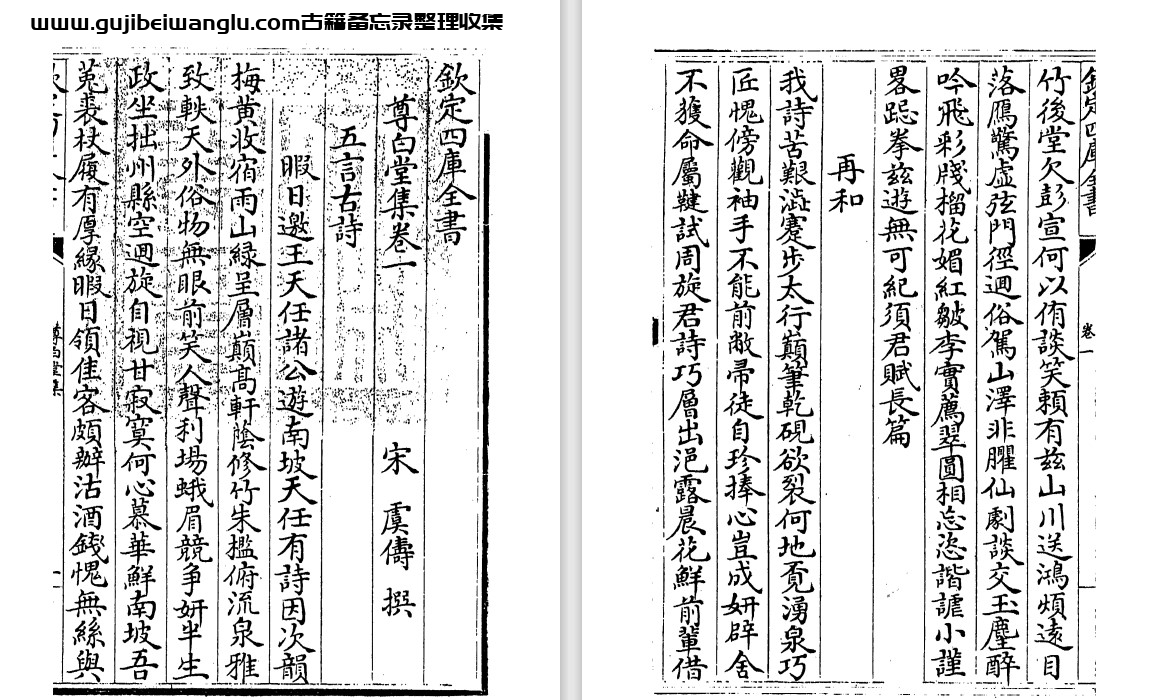 www.gujibeiwanglu.com古籍备忘录整理收集
欽定四庫全書
尊白堂集卷一
宋 虞儔 撰
五言古詩
暇日邀王天任諸公遊南坡天任有詩因次韻
梅黄收宿雨山緑呈層巔高軒蔭修竹朱檻俯流泉雅
致軼天外俗物無眼前笑人聲利場蛾眉競争妍半生
政坐拙州縣空迴旋自視甘寂寞何心慕華鮮南坡吾
菟裘杖屨有厚緣暇日領佳客頗辦沽酒錢愧無絲與
尊白堂集
欽定四庫全書
卷一
竹後堂欠彭宣何以侑談笑頼有兹山川送鴻煩遠目
落鴈驚虚弦門徑迴俗駕山澤非臞仙劇談交玉麈醉
吟飛彩牋榴花媚紅皺李實薦翠圓相忘恣諧謔小謹
畧跽拳兹遊無可紀須君賦長篇
再和
我詩苦艱澁蹇步太行巔筆乾硯欲裂何地覔湧泉巧
匠愧傍觀袖手不能前敝帚徒自珍捧心豈成妍辟舍
不獲命屬鞬試周旋君詩巧層出浥露晨花鮮前輩借